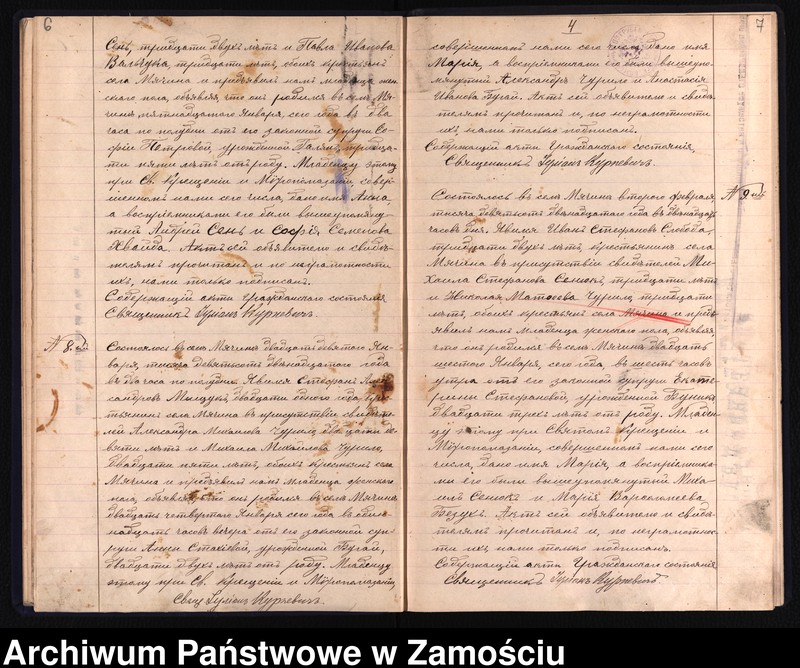 6
Сень, тридцати двухъ лѣтъ и Павла Иванова
Вальчука, тридцати лѣтъ, обоихъ крестьянъ
села Мячина и предъявилъ намъ младенца жен-
скаго пола, объявляя, что онъ родился въ селѣ Мя-
чинѣ пятнадцатого Января, сего года въ два
часа по полудни отъ его законной супруги Со-
фіи Петровой, урожденной тридца-
ти пяти лѣтъ отъ роду. Младенцу этому
при Св. Крещеніи и Мѵропомазаніи, совер-
шенномъ нами сего числа, дано имя Анна,
а воспріемниками его были вышеупомяну-
тый Андрей Сень и Софія Семенова
Хвайда. Актъ сей объявителю и свидѣ-
телямъ прочитанъ и по неграмотности
ихъ, нами только подписанъ.
Содержащій акты гражданскаго состоянія
Священникъ Іуліанъ Куркевичъ.
№ 8.
Состоялось въ селѣ Мячинѣ двадцать девятого Ян-
варя, тысяча девятьсотъ двѣнадцатого года
въ два часа по полудни. Явился Стефанъ Алек-
сандровъ Мыщукъ, двадцати одного года, кре-
стьянинъ села Мячина въ присутствіи свидѣте-
лей Александра Михаилова Чурило, двадцати де-
вяти лѣтъ и Михаила Михаилова Чурило,
двадцати пяти лѣтъ, обоихъ крестьянъ села
Мячина и предъявилъ намъ младенца женскаго
пола, объявляя, что онъ родился въ селѣ Мячинѣ
двадцать четвертого Января сего года въ один-
надцать часовъ вечера отъ его законной суп-
руги Анны Стахіевой, урожденной Бугай,
двадцати двухъ лѣтъ отъ роду. Младенцу
этому при Св. Крещеніи и Мѵропомазаніи
Свящ Іуліанъ Куркевичъ.
4
7
совершенномъ нами сего числа, дано имя
Марія, а воспріемниками его были вышеупо-
мянутый Александръ Чурило и Анастасія
Иванова Бугай. Актъ сей объявителю и свидѣ-
телямъ прочитанъ и, по неграмотности
ихъ, нами только подписанъ.
Содержащій акты Гражданскаго состоянія,
Священникъ Іуліанъ Куркевичъ.
№ 9
Состоялось въ селѣ Мячинѣ второго Февраля,
тысяча девятьсотъ двѣнадцатого года въ двѣнадцать
часовъ дня. Явился Иванъ Стефановъ Слобода,
тридцати двухъ лѣтъ, крестьянинъ села
Мячина въ присутствіи свидѣтелей Ми-
хаила Стефанова Сенюкъ, тридцати лѣтъ
и Николая Матѳеева Чурило, тридцати
лѣтъ, обоихъ крестьянъ села Мячина и предъ-
явилъ намъ младенца женскаго пола, объявляя
что онъ родился въ селѣ Мячинѣ двадцать
шестого Января, сего года, въ шесть часовъ
утра отъ его законной супруги Екате-
рины Стефановой, урожденной
двадцати трехъ лѣтъ отъ роду. Младен-
цу этому при Святомъ Крещеніи и
Мѵропомазаніи, совершенномъ нами сего
числа, дано имя Марія, а воспріемника-
ми его были вышеупомянутый Миха-
илъ Сенюкъ и Марія Варѳоломеева
Актъ сей объявителю и свидѣ-
телямъ прочитанъ и, по неграмотнос-
ти ихъ, нами только подписанъ.
Содержащій акты Гражданскаго состоянія
Священникъ Іуліанъ Куркевичъ
Archiwum Państwowe w Zamościu